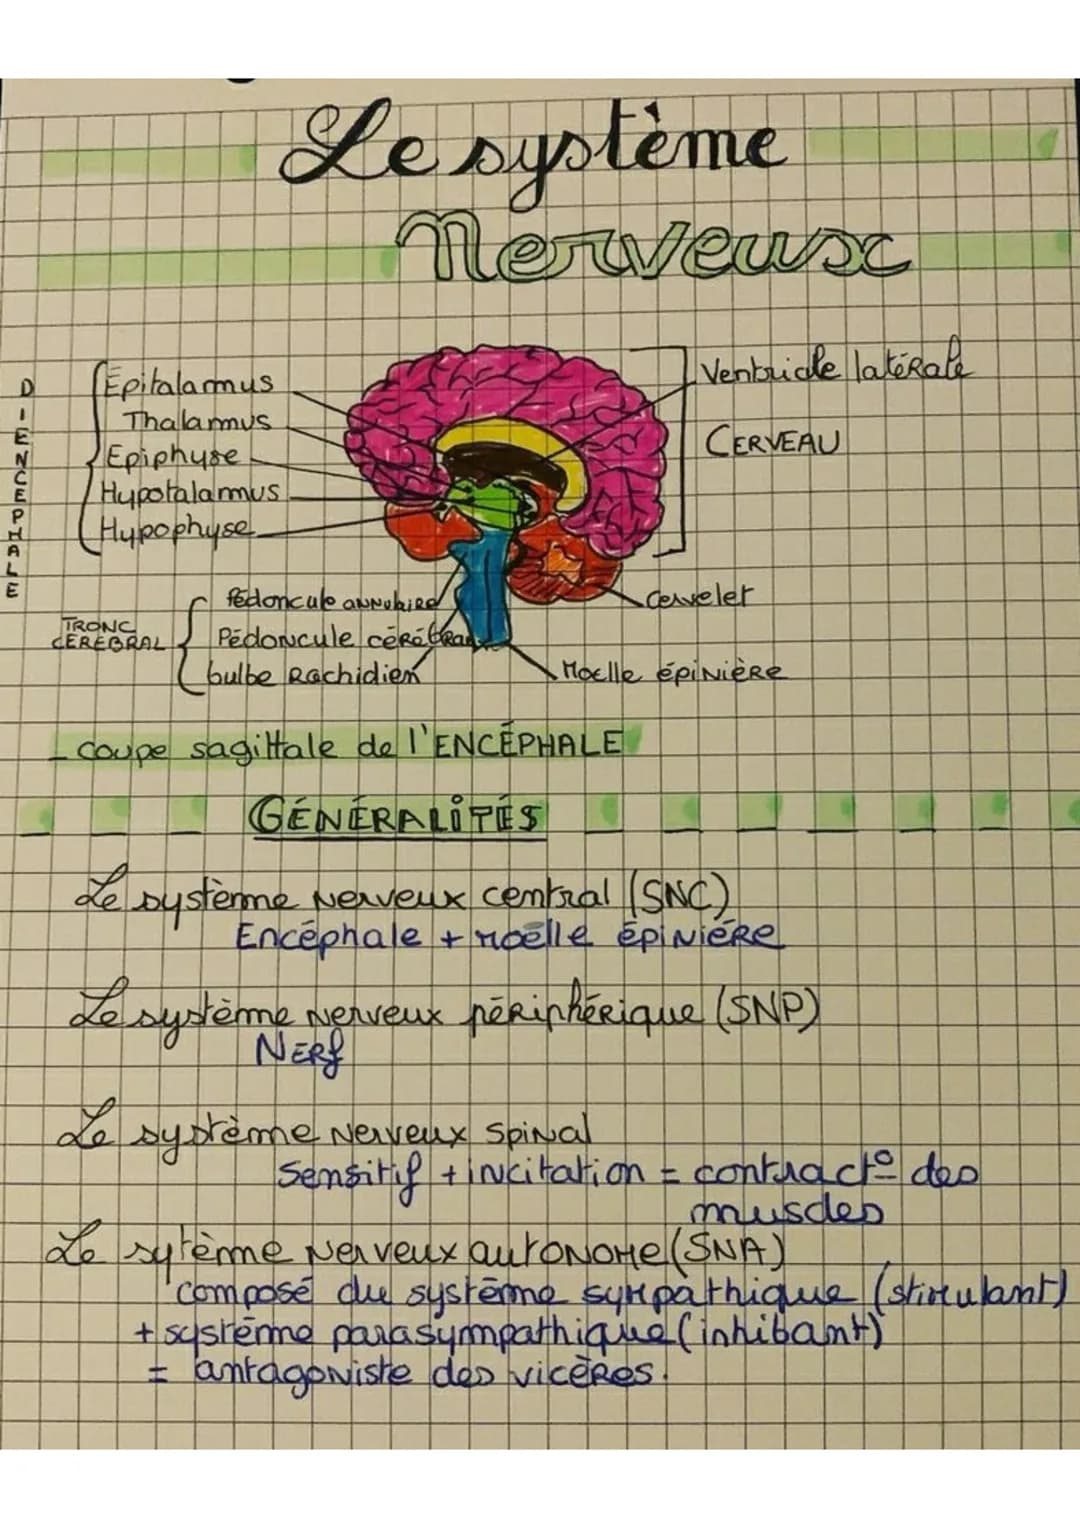 Le système
Nerveux
DIENCEPHALE
Epitalamus
Thalamus
Epiphyse
Hypotalamus
Hypophyse
Ventricule latérale
CERVEAU
TRONC
CEREBRAL
Pédoncule annulaire
Pédoncule cérébraux
bulbe Rachidien
Cervelet
Moelle épinière
- coupe sagittale de l'ENCÉPHALE
GÉNÉRALITÉS
Le système nerveux central (SNC)
Encéphale + moëlle épinière
Le système nerveux périphérique (SNP)
Nerf
Le système nerveux spinal
Sensitif + incitation = contract° des
muscles
Le sytème nerveux autonome (SNA)
composé du système sympathique (stimulant)
+ système parasympathique (inhibant)
= antagoniste des vicères.